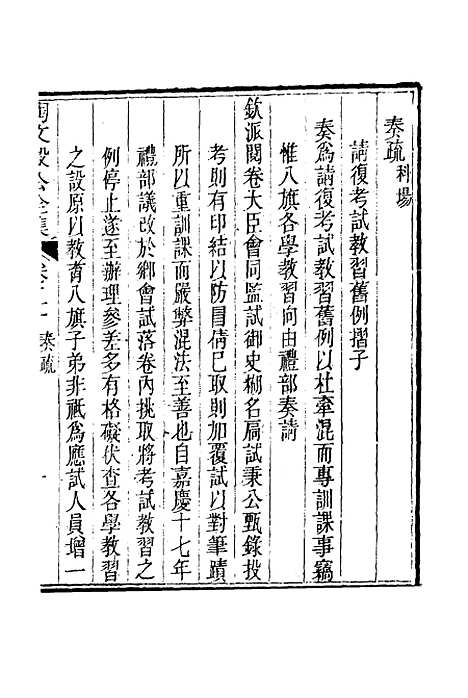 奏疏科場
請復考試教習舊例摺子
奏為請復考試教習舊例以杜牽混而專訓課事竊
惟八旗各學教習向由禮部奏請
欽派閱卷大臣會同監試御史糊名扃試秉公甄錄投
考則有印結以防冒倩已取則加覆試以對筆蹟
所以重訓課而嚴弊混法至善也自嘉慶十七年
禮部議改於鄉會試落卷內挑取將考試教習之
例停止遂至辦理參差多有格礙伏查各學教習
之設原以教育八旗子弟非祇為應試人員增一
陶文毅公全集 卷 奏疏 一